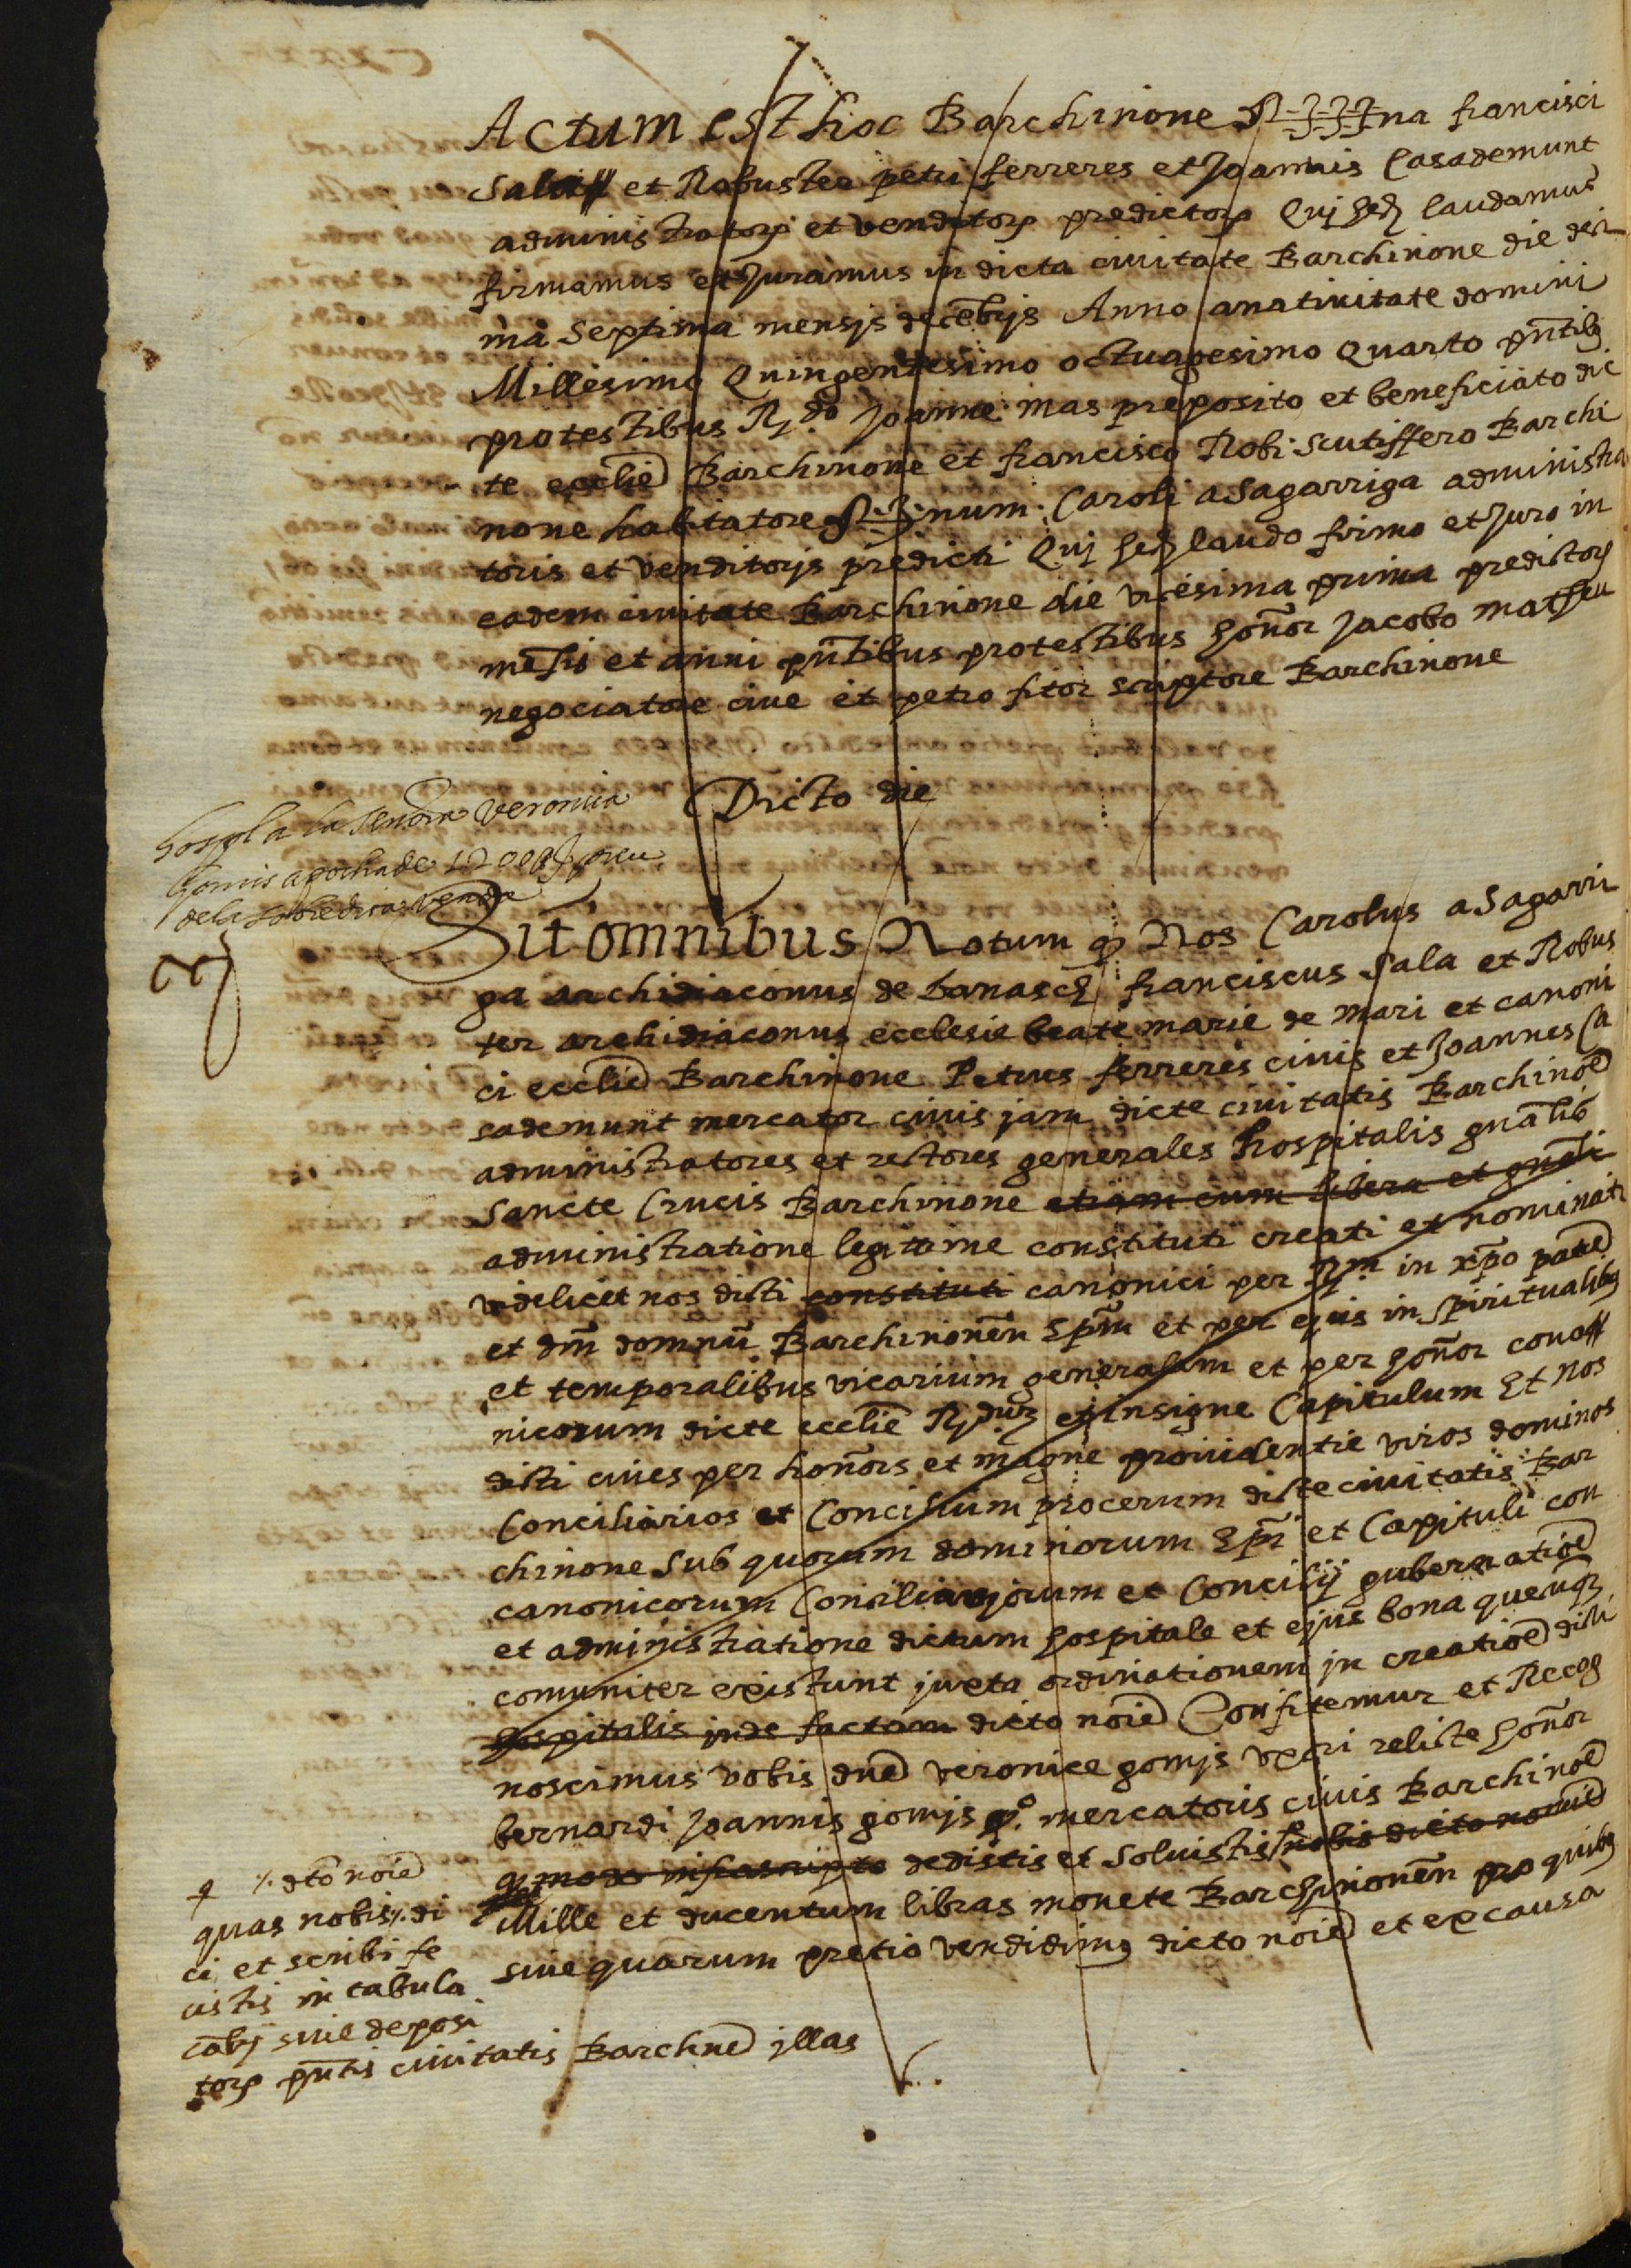 Actum est hoc Barchinone S-]-]-]-]-na francisci
Sala et Robuster petri ferreres et Joannis Casademunt
administrator et venditor predictor Qui hec laudamus
firmamus et Juramus in dicta civitate Barchinone die deci
ma septima mensis decebris Anno anativitate domini
Millesimo Quingentesimo octuagesimo Quarto pntib
protestibus Rdo Joanne mas preposito et beneficiato dic
te ecclie Barchinone et francisco Robi scutiffero Barchi
none habitatore S-]-num Caroli a Sagarriga administra
toris et venditoris predicti Qui hec laudo firmo et Juro in
eadem civitate Barchinone die vicesima prima predictor
mesis et anni pntibus protestibus honor Jacobo matheu
negociatore cive et petro fitor scriptore Barchinone
Dicto die
hospl a la senora veronica
gomis apocha de 1200 preu
de la sobredita venda
Sit omnibus Notum q Nos Carolus a Sagarri
ga archidiaconus de banasch franciscus Sala et Robus
ter archidiaconus ecclesie beate marie de mari et canoni
ci ecclie Barchinone Petrus ferreres civis et Joannes Ca
sademunt mercator civis jam dicte civitatis Barchinoe
administratores et rectores generales hospitalis gnalis
Sancte Crucis Barchinone etiam cum libera et gnali
administratione legitime constituti creati et nominati
videlicet nos dicti constituti canonici per Rm in xpo patre
et dm domnu Barchinonen Epm et per ejus in spiritualib
et temporalibus vicarium generalem et per honor cano
nicorum dicte ecclie Rdu et insigne Capitulum Et nos
dicti cives per honors et magne providentie viros dominos
Conciliarios et Concilium procerum dicte civitatis Bar
chinone sub quorum dominorum Epi et Capituli con
canonicorum Conciliariorum et Concilij gubernatioe
et administratione dictum hospitale et ejus bona queuq
comuniter existunt juxta ordinationem in creatioe dicti
hospitalis inde factam dicto noie Confitemur et Recog
noscimus vobis dne veronice gomis uxori relicte honor
bernardi Joannis gomis qo. mercatoris civis Barchinoe
q modo infrascripto dedistis et solvistis nobis dicto nomie
Mille et ducentum libras monete Barchinonen pro quib
sive quarum pretio vendidimus dicto noie et ex causa
dto noie
quas nobis di
ci et scribi fe
cistis in tabula
cabij sive deposi
tor pntis civitatis Barchne illas